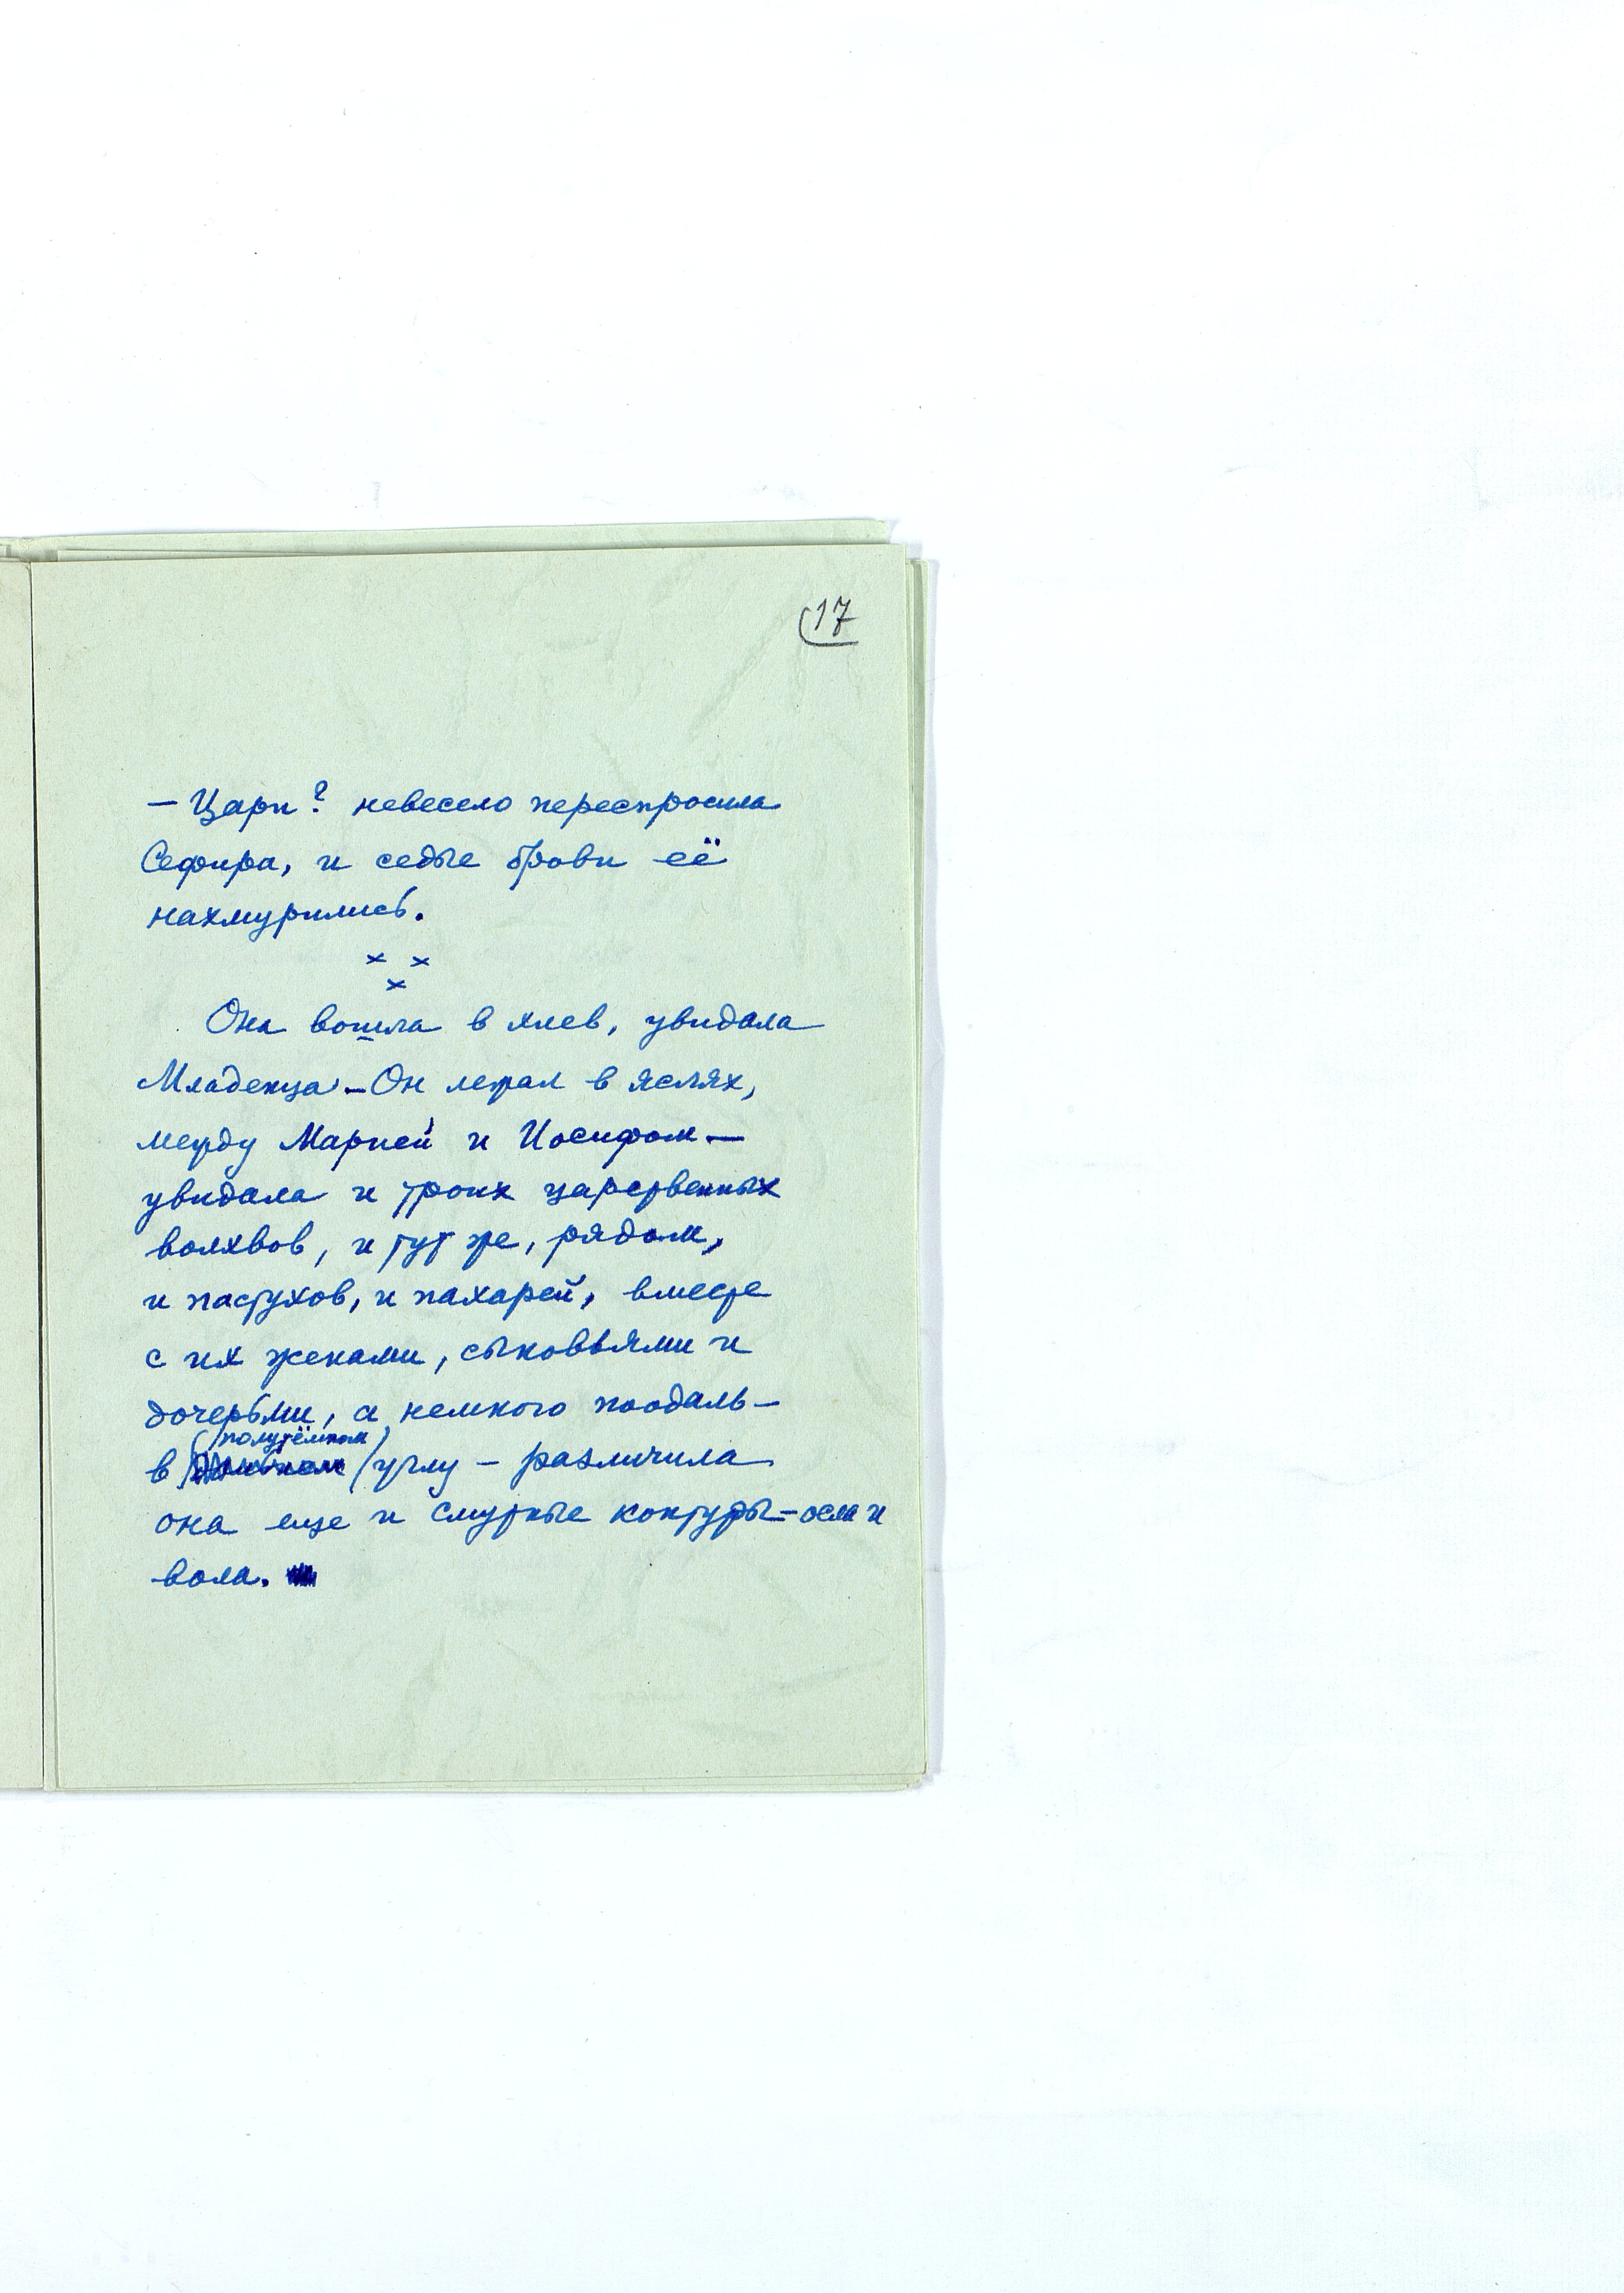 17
— Цари? невесело переспросила
Сефира, и седые брови её
нахмурились.
× ×
×
Она вошла в хлев, увидала
Младенца — Он лежал в яслях,
между Марией и Иосифом —
увидала и троих царственных
волхвов, и тут же, рядом,
и пастухов, и пахарей, вместе
с их женами, сыновьями и
дочерьми, а немного поодаль —
(полутёмном)
в углу — различила
она еще и смутные контуры — осла и
вола.